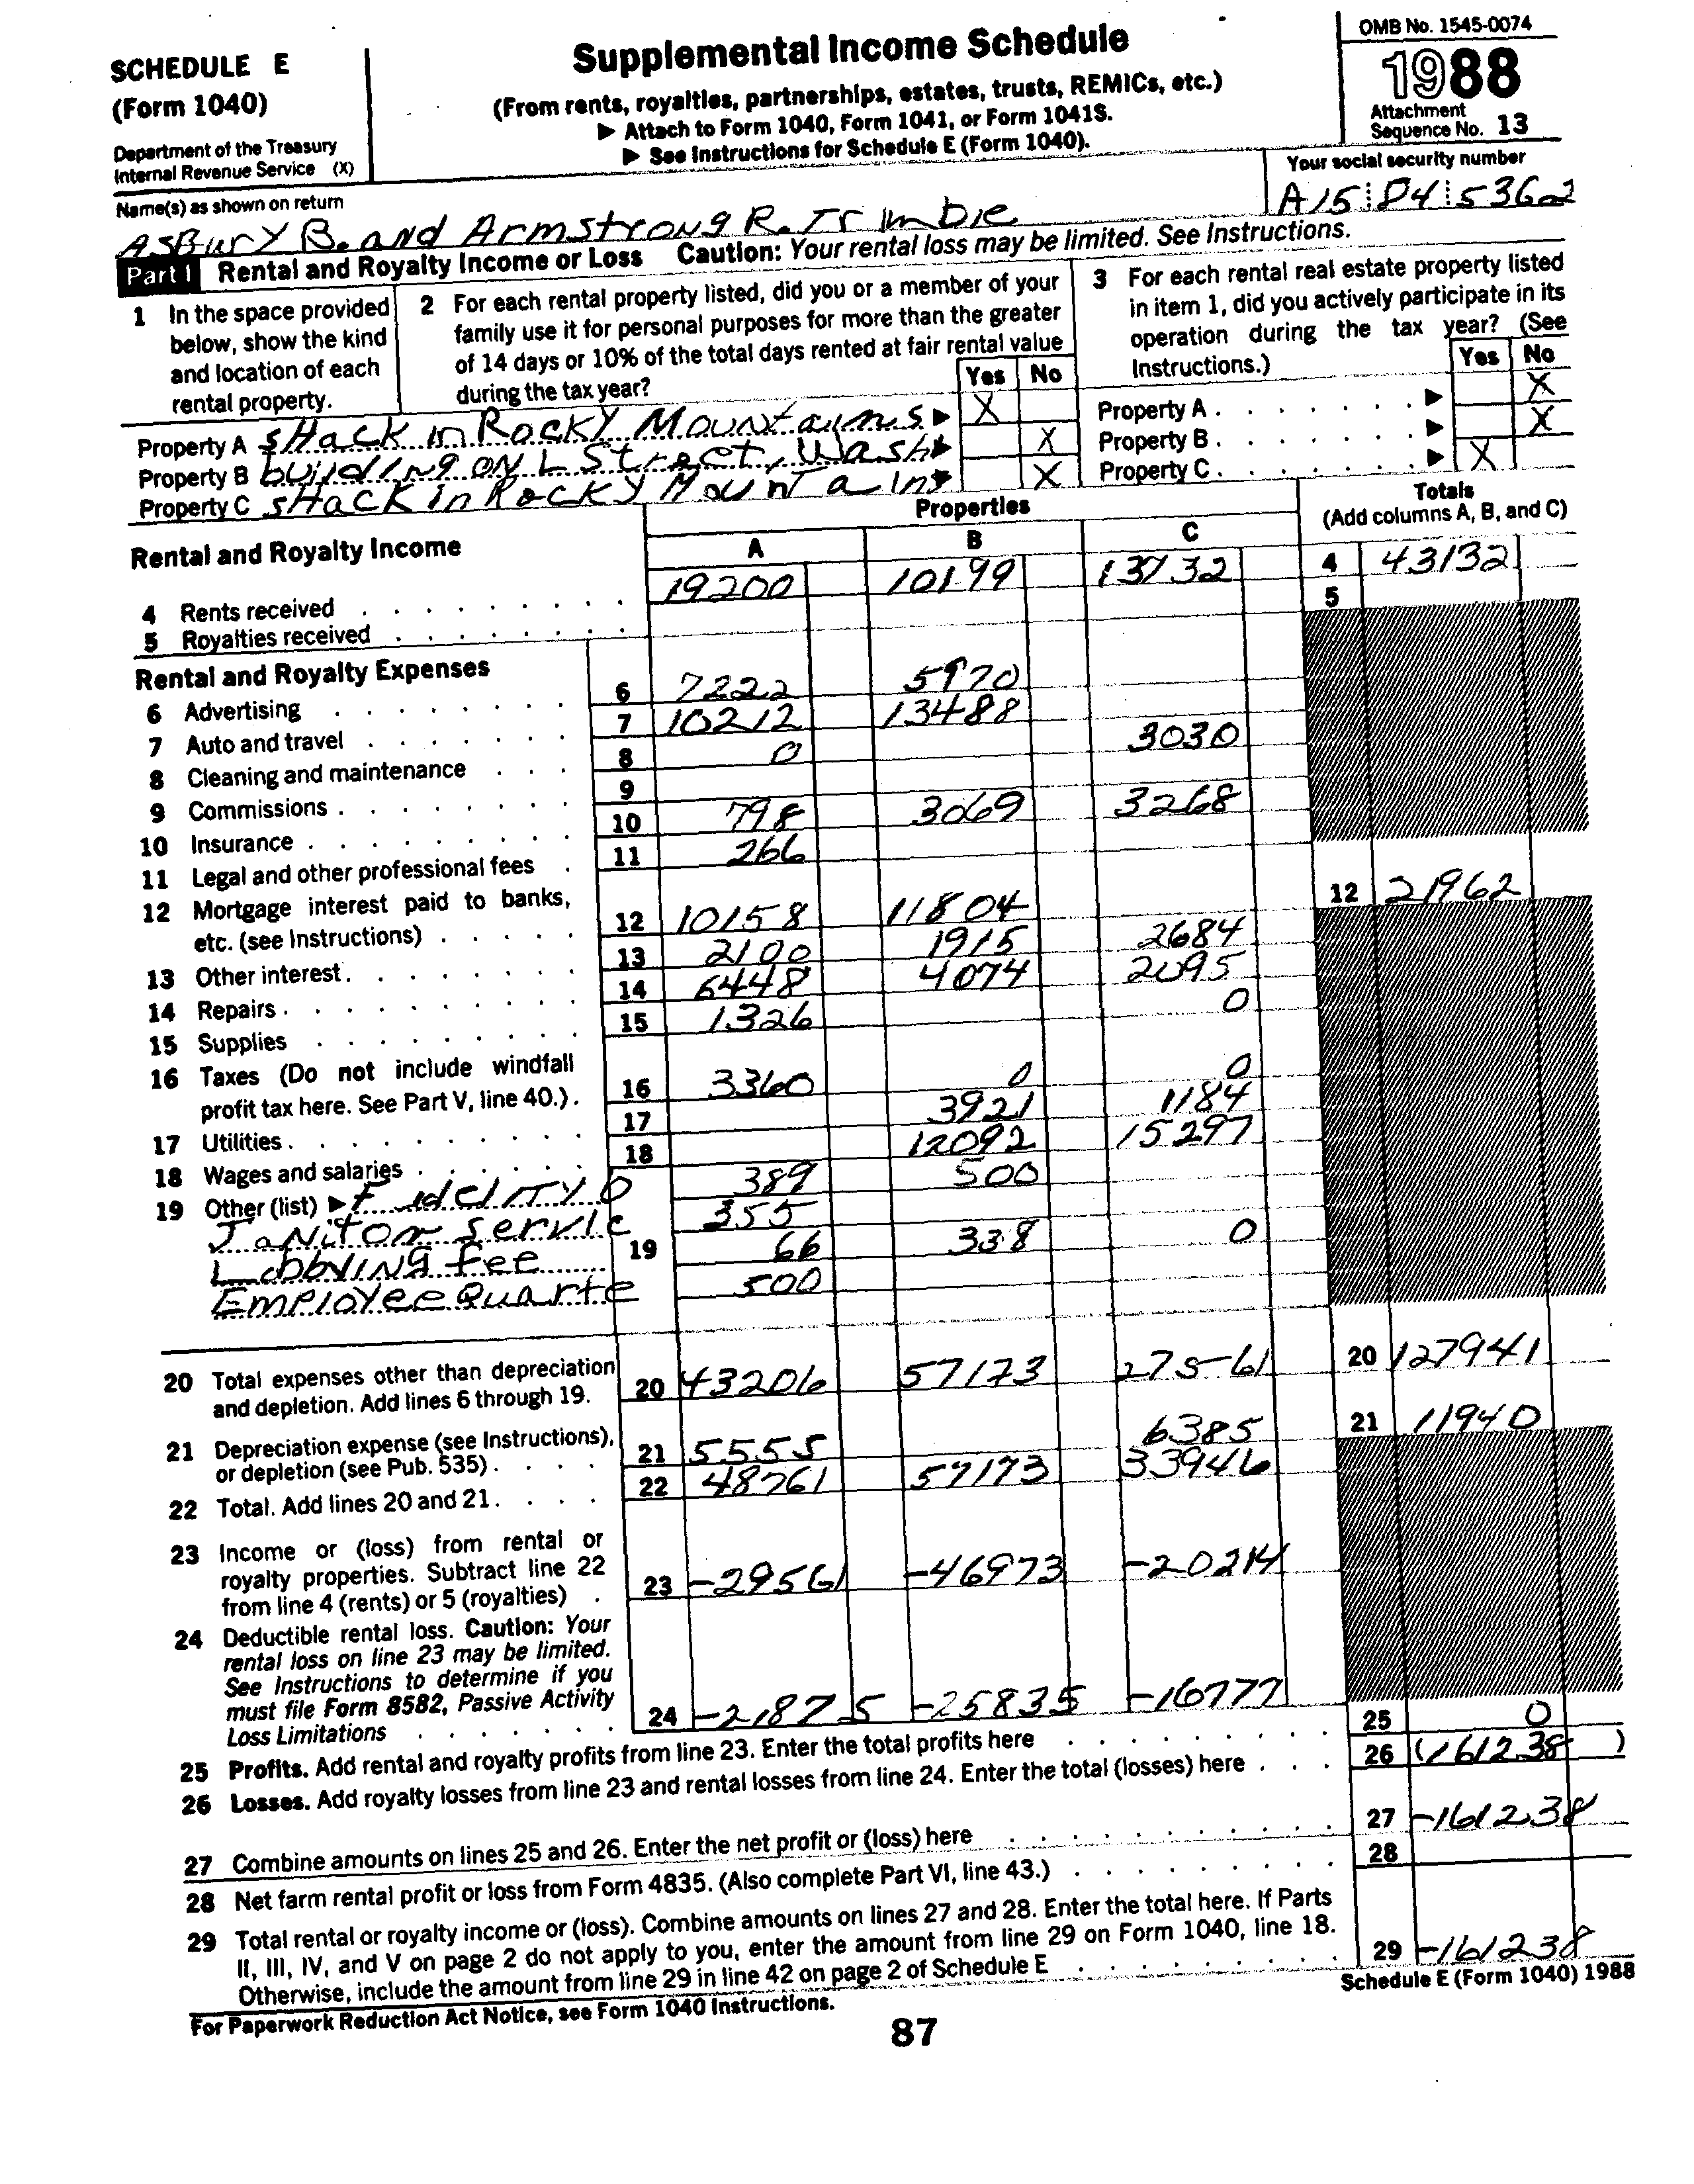 SCHEDULE E
(Form 1040)
Department of the Treasury
Internal Revenue Service (X)
Supplemental Income Schedule
(From rents, royalties, partnerships, estates, trusts, REMICs, etc.)
▶ Attach to Form 1040, Form 1041, or Form 1041S.
▶ See Instructions for Schedule E (Form 1040).
OMB No. 1545-0074
1988
Attachment
Sequence No. 13
Name(s) as shown on return
Your social security number
ASBury B. and Armstrong R.
A15 D4 5362
Part I Rental and Royalty Income or Loss Caution: Your rental loss may be limited. See Instructions.
1 In the space provided below, show the kind and location of each rental property.
2 For each rental property listed, did you or a member of your family use it for personal purposes for more than the greater of 14 days or 10% of the total days rented at fair rental value during the tax year?
Yes No
3 For each rental real estate property listed in item 1, did you actively participate in its operation during the tax year? (See Instructions.)
Yes No
Property A SHack in Rocky Mountains ▶ X
Property A . . . ▶ X
Property B building ON L Street, Wash ▶ X
Property B . . . ▶ X
Property C sHack in Rocky Mountains X
Property C . . . ▶ X
Rental and Royalty Income
Properties
A B C
Totals
(Add columns A, B, and C)
4 Rents received 19200 10199 13732 4 43132
5 Royalties received 5
Rental and Royalty Expenses
6 Advertising 6 7222 5970
7 Auto and travel 7 10212 13488
8 Cleaning and maintenance 8 0 3030
9 Commissions 9
10 Insurance 10 798 3069 3268
11 Legal and other professional fees 11 266
12 Mortgage interest paid to banks, etc. (see Instructions) 12 10158 11804 12 21962
13 Other interest 13 2100 1915 2684
14 Repairs 14 6448 4074 2095
15 Supplies 15 1326 0
16 Taxes (Do not include windfall profit tax here. See Part V, line 40.) 16 3360 0 0
17 Utilities 17 3921 1184
18 Wages and salaries 18 12092 15297
19 Other (list) ▶ Fidelity O 389 500
Janitor servic 355
Lobbying fee 19 66 338 0
Employee Quarte 500
20 Total expenses other than depreciation and depletion. Add lines 6 through 19. 20 43206 57173 27561 20 127941
21 Depreciation expense (see Instructions), or depletion (see Pub. 535) 21 5555 6385 21 11940
22 Total. Add lines 20 and 21 22 48761 57173 33946
23 Income or (loss) from rental or royalty properties. Subtract line 22 from line 4 (rents) or 5 (royalties) 23 -29561 -46973 -20214
24 Deductible rental loss. Caution: Your rental loss on line 23 may be limited. See Instructions to determine if you must file Form 8582, Passive Activity Loss Limitations 24 -21875 -25835 -16777
25 Profits. Add rental and royalty profits from line 23. Enter the total profits here 25 0
26 Losses. Add royalty losses from line 23 and rental losses from line 24. Enter the total (losses) here 26 (161238)
27 Combine amounts on lines 25 and 26. Enter the net profit or (loss) here 27 -161238
28 Net farm rental profit or loss from Form 4835. (Also complete Part VI, line 43.) 28
29 Total rental or royalty income or (loss). Combine amounts on lines 27 and 28. Enter the total here. If Parts II, III, IV, and V on page 2 do not apply to you, enter the amount from line 29 on Form 1040, line 18. Otherwise, include the amount from line 29 in line 42 on page 2 of Schedule E 29 -161238
For Paperwork Reduction Act Notice, see Form 1040 Instructions.
Schedule E (Form 1040) 1988
87